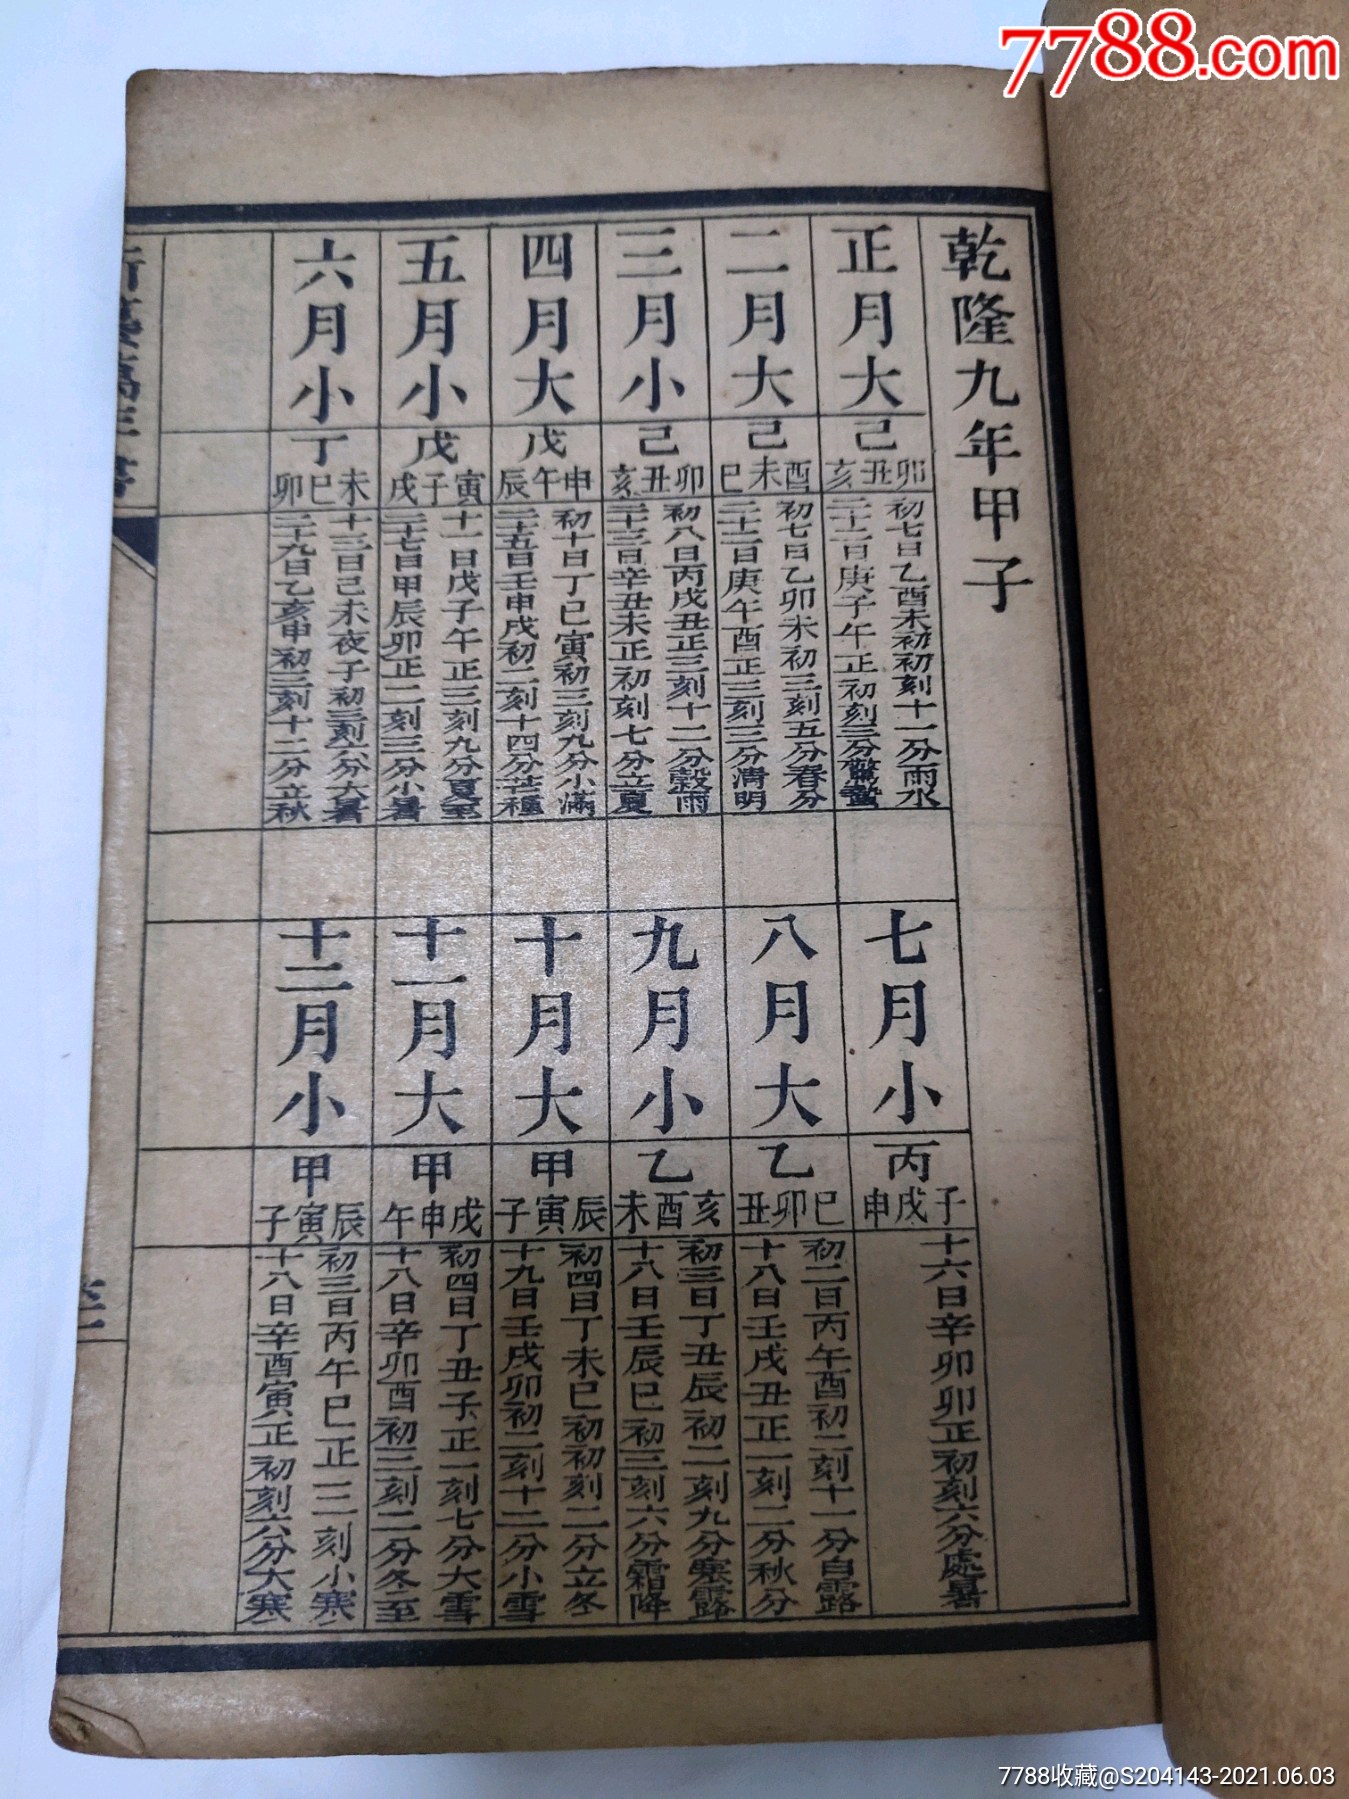 7788.com
乾隆九年甲子
正月大
己
卯丑亥
初七日乙酉未初初刻十一分雨水
二十二日庚子午正初刻三分驚蟄
二月大
己
酉未巳
初七日乙卯未初三刻五分春分
二十二日庚午酉正三刻三分清明
三月小
己
卯丑亥
初八日丙戌丑正三刻十二分穀雨
二十三日辛丑未正初刻七分立夏
四月大
戊
申午辰
初十日丁巳寅初三刻九分小滿
二十五日壬申戌初二刻十四分芒種
五月小
戊
寅子戌
十一日戊子午正三刻九分夏至
二十七日甲辰卯正二刻三分小暑
六月小
丁
未巳卯
十三日己未夜子初三刻六分大暑
二十九日乙亥申初三刻十二分立秋
七月小
丙
子戌申
十六日辛卯卯正初刻六分處暑
八月大
乙
巳卯丑
初二日丙午酉初二刻十一分白露
十八日壬戌丑正一刻二分秋分
九月小
乙
亥酉未
初三日丁丑辰初二刻九分寒露
十八日壬辰巳初三刻六分霜降
十月大
甲
辰寅子
初四日丁未巳初初刻二分立冬
十九日壬戌卯初二刻十二分小雪
十一月大
甲
戌申午
初四日丁丑子正一刻七分大雪
十八日辛卯酉初三刻二分冬至
十二月小
甲
辰寅子
初三日丙午巳正三刻小寒
十八日辛酉寅正初刻六分大寒
萬年書
7788收藏@S204143-2021.06.03